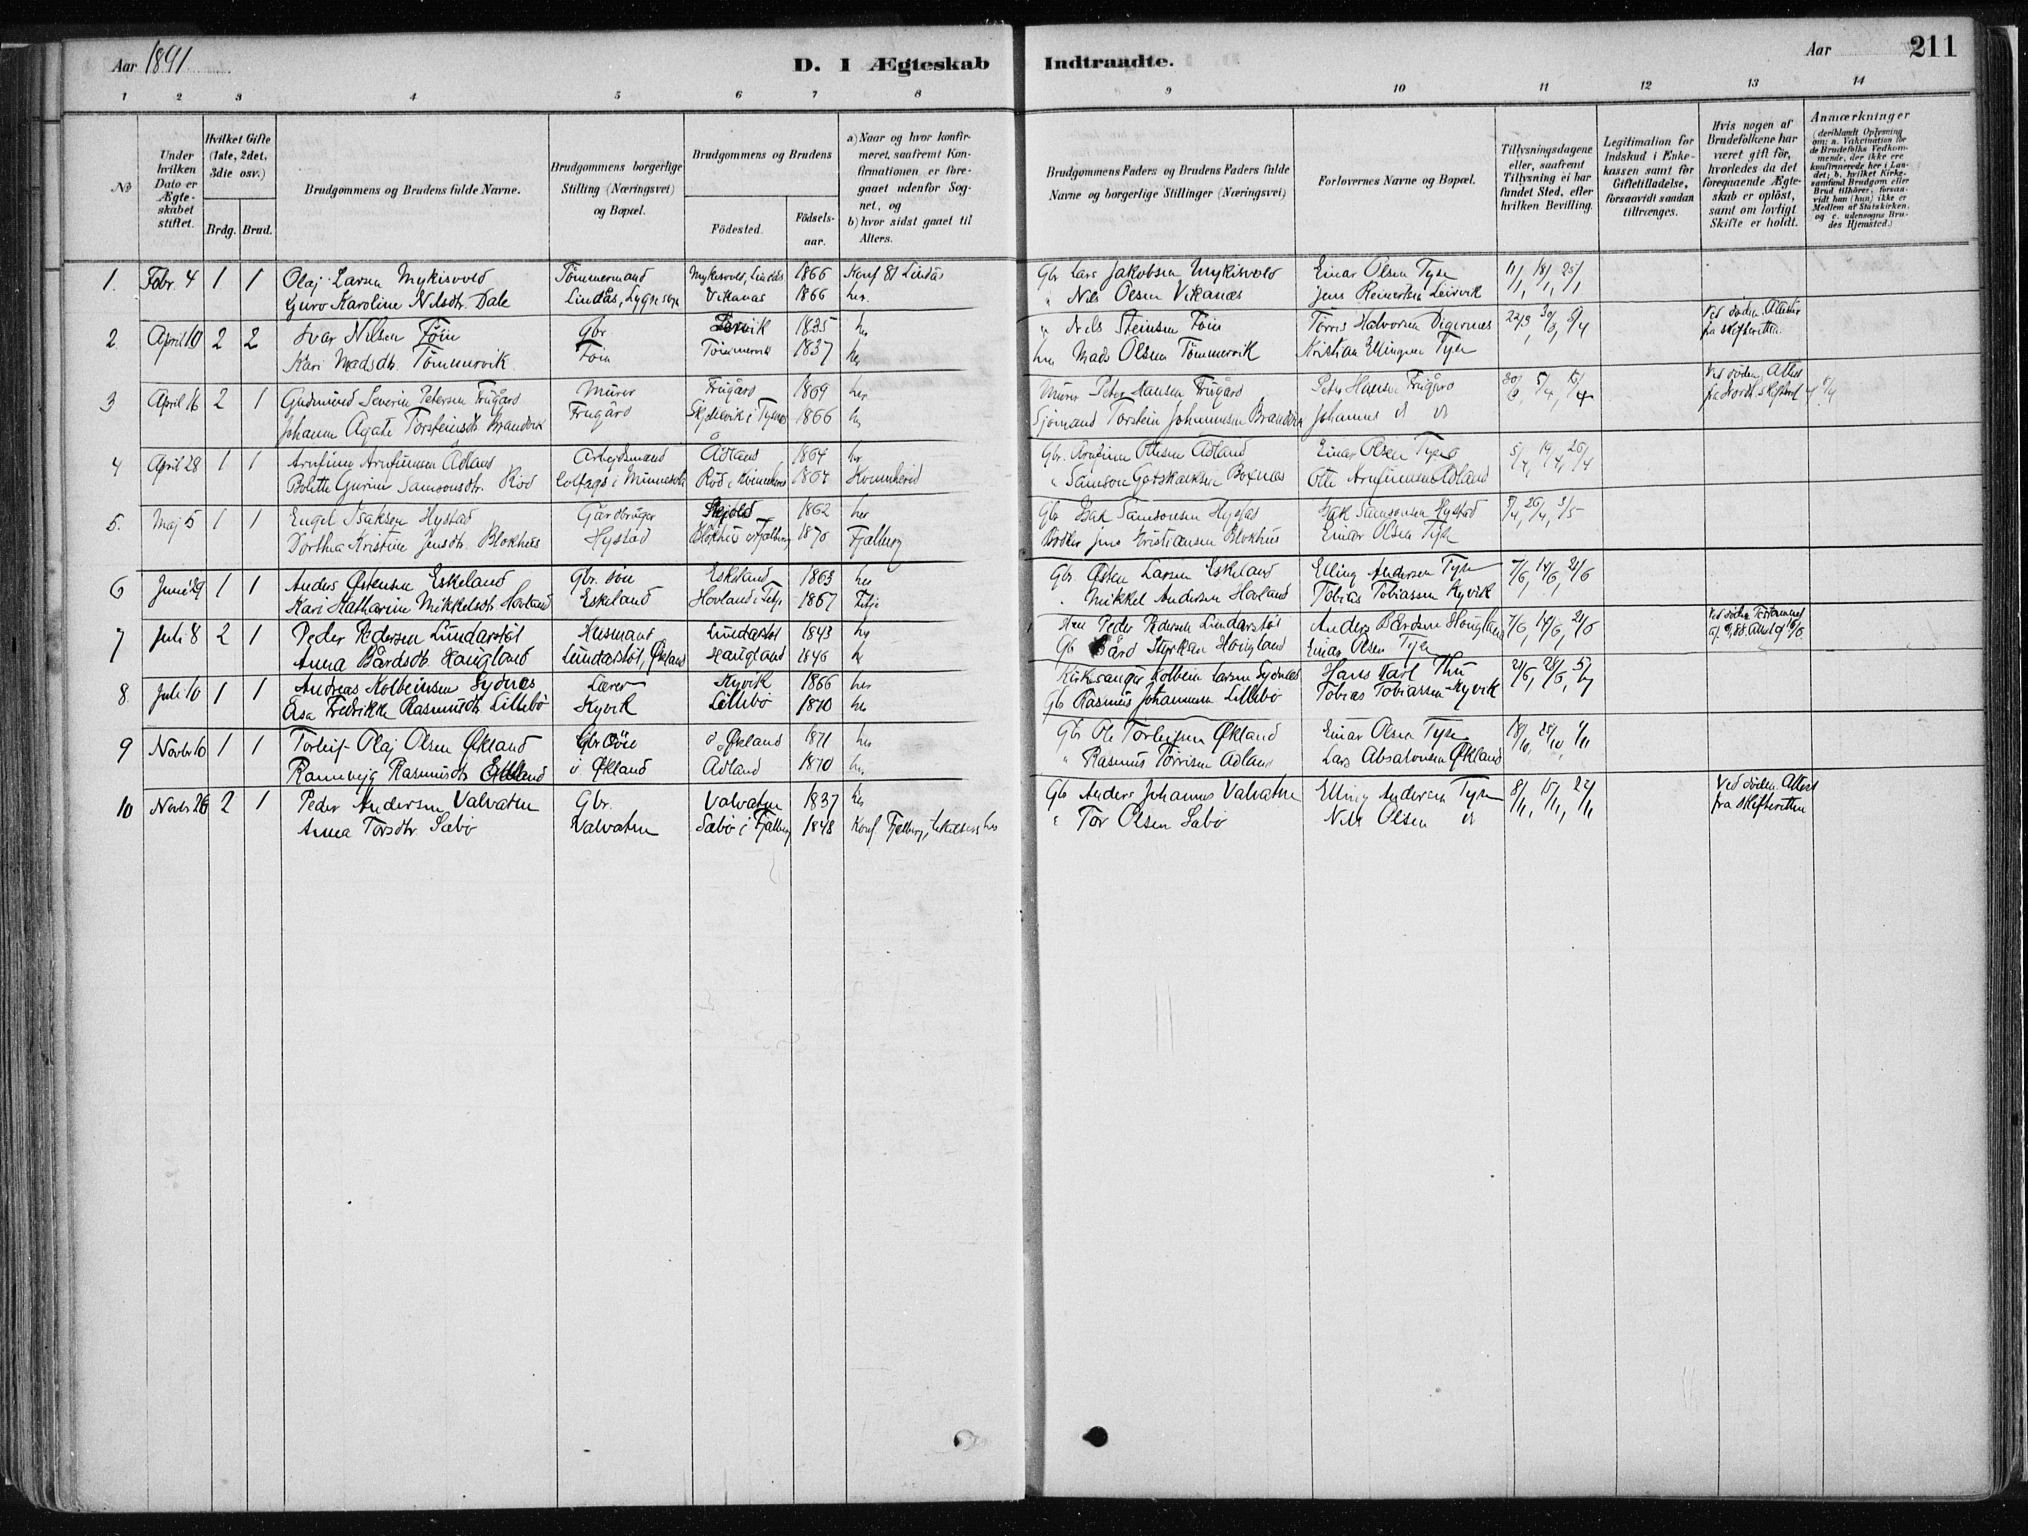 Aar 1891
D. I Ægteskab Indtraadte.
Aar
211
1 2 3 4 5 6 7 8 9 10 11 12 13 14
No
Under hvilken Dato er Ægteskabet stiftet.
Hvilket Gifte (1ste, 2det, 3die osv.)
Brdg. Brud.
Brudgommens og Brudens fulde Navne.
Brudgommens borgerlige Stilling (Næringsvei) og Bopæl.
Brudgommens og Brudens
Födested.
Födselsaar.
a) Naar og hvor konfirmeret, saafremt Konfirmationen er foregaaet udenfor Sognet, og
b) hvor sidst gaaet til Alters.
Brudgommens Faders og Brudens Faders fulde Navne og borgerlige Stillinger (Næringsvei)
Forlovernes Navne og Bopæl.
Tillysningsdagene eller, saafremt Tillysning ei har fundet Sted, efter hvilken Bevilling.
Legitimation for Indskud i Enkekassen samt for Giftetilladelse, forsaavidt saadan tiltrænges.
Hvis nogen af Brudefolkene har været gift för, hvorledes da det foregaaende Ægteskab er oplöst, samt om lovligt Skifte er holdt.
Anmærkninger (deriblandt Oplysning om: a. Vakcination for de Brudefolks Vedkommende, der ikke ere konfirmerede her i Landet; b. hvilket Kirkesamfund Brudgom eller Brud tilhörer, forsaavidt han (hun) ikke er Medlem af Statskirken, og c. udensogns Brudes Hjemsted.)
1. Febr. 4 1 1 Olaj Larsen Mykisvold Tömmermand Mykisvold, Lindås 1866 Konf 81 Lindås Gbr Lars Jakobsen Mykisvold Einar Olsen Tyse 11/1, 18/1, 25/1
Guro Karoline Nilsdtr. Dale Lindås, Vikanas 1866 her " Nils Olsen Vikanæs Jens Reinertsen Leirvik
2 April 10 2 2 Ivar Nilsen Töin Gbr. 1835 her " Nils Steinsen Töin Törris Halvorsen Digernes 22/3, 30/3, 5/4 Ved döden. Attest fra skifteretten
Kari Madsdtr. Tömmervik Töin Tömmervik 1837 her Mads Olsen Tömmervik Kristian Ellingsen Tyse
3 April 16 2 1 Gudmund Severin Petersen Frugård Murer Frugård 1869 her Murer Peter Hansen Frugård Peter Hansen Frugård 30/3, 5/4, 15/4 Ved döden, Attest
Johanne Agate Torsteinsdtr. Brandvik Frugård Skjelevik i Tysnes 1866 her Sjömand Torstein Johannesen Brandvik Johannes
4 April 28 1 1 Arnfinn Arnfinnsen Ådland Arbeidsmand Ådland 1864 her Gbr. Arnfinn Ottesen Ådland Einar Olsen Tyse 5/4, 19/4, 26/4
Bolette Gurine Samsonsdtr. Röd Colfags i Minnesota Röd i Kvinnherred 1864 Kvinnherred " Samson Gotskalksen Otte Arnfinnsen Ådland
5. Maj 5 1 1 Engel Isaksen Hystad Gårdbruger Skjold 1862 her Gbr Isak Samsonsen Hystad Isak Samsonsen Hystad 26/4, 3/5
Dorthea Kristine Jensdtr. Blokhus Hystad Blokhus i Fjelberg 1870 Fjelberg Jens Kristiansen Blokhus Einar Olsen Tyse
6 Juni 29 1 1 Anders Østensen Eskeland Gbr. sön Eskeland 1863 her Gbr. Østen Larsen Eskeland Elling Andersen Tyse 7/6, 14/6, 21/6
Kari Katharine Mikkelsdtr. Hovland Eskeland Hovland i Fitje 1867 Fitje " Mikkel Andersen Hovland Tobias Tobiassen Kyvik
7 Juli 8 2 1 Peder Pedersen Lundarstöl Husmand Lundarstöl 1843 her Peder Pedersen Lundarstöl Anders Bårdsen Haugland 7/6, 14/6, 21/6 Ved döden
Anna Bårdsdtr. Haugland Lundarstöl, Økland Haugland 1846 her Gbr Bård Styrksen Haugland Einar Olsen Tyse
8. Juli 10 1 1 Andreas Kolbeinsen Sydnes Lærer Kyvik 1866 her Kirkesanger Kolbein Larsen Sydnæs Hans Karl Thu 21/6, 28/6, 5/7
Åsa Fredrikke Rasmusdtr. Lillebö Kyvik Lillebö 1870 her Gbr Rasmus Johannesen Lillebö Tobias Tobiassen Kyvik
9 Novbr 10 1 1 Torleif Olaj Olsen Økland Gbr sön Økland 1871 her Gbr Ole Torleifsen Økland Einar Olsen Tyse 18/10, 25/10, 1/11
Rannveig Rasmusdtr. Ådland Økland Ådland 1870 her " Rasmus Törrisen Ådland Lars Absalonsen Økland
10 Novbr 26 2 1 Peder Andersen Valvatne Gbr. Valvatne 1837 her Gbr Anders Johannes Valvatne Elling Andersen Tyse 8/11, 15/11, 22/11 Ved döden. Attest fra skifteretten
Anna Torsdtr. Sæbö Valvatne Sæbö i Fjelberg 1848 Konf Fjelberg, tilalters her " Tor Olsen Sæbö Nils Olsen